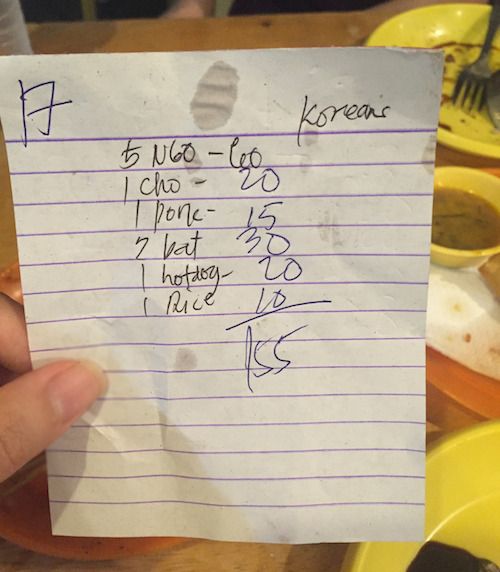 17
Koreans
5 NGO - 60
1 cho - 20
1 Pork - 15
2 bat 30
1 hotdog - 20
1 Rice 10
155